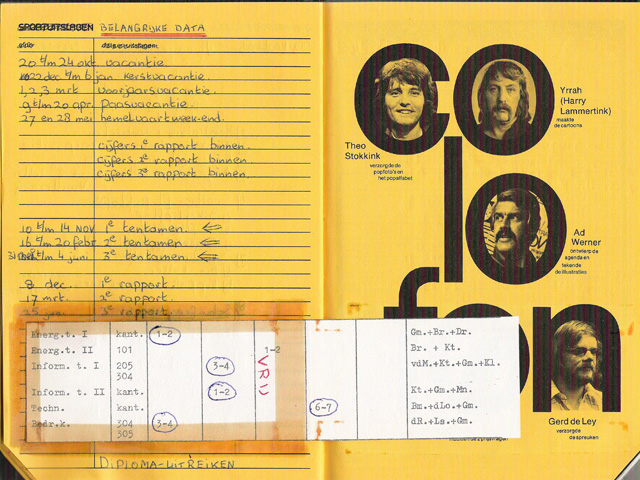 SPORTUITSLAGEN BELANGRIJKE DATA
20 t/m 24 okt. vacantie.
22 dec. t/m 6 jan. kerstvacantie.
1, 2, 3 mrt voorjaarsvacantie.
9 t/m 20 apr. paasvacantie.
27 en 28 mei hemelvaartweek-end.
cijfers 1e rapport binnen.
cijfers 2e rapport binnen.
cijfers 3e rapport binnen.
10 t/m 14 NOV 1e tentamen.
16 t/m 20 febr. 2e tentamen.
t/m 4 juni 3e tentamen.
8 dec. 1e rapport.
17 mrt. 2e rapport.
3e rapport.
Energ.t. I kant. 1-2 Gm.+Br.+Dr.
Energ.t. II 101 1-2 Br. + Kt.
Inform. t. I 205 3-4 vdM.+Kt.+Gm.+Kl.
304
Inform. t. II kant. 1-2 Kt.+Gm.+Mn.
Techn. kant. 6-7 Bm.+dLo.+Gm.
Bedr.k. 304 3-4 dR.+Ls.+Gm.
305
VRIJ
DIPLOMA-UITREIKEN
co
lo
fon
Theo
Stokkink
verzorgde de
popfoto's en
het popalfabet
Yrrah
(Harry
Lammertink)
maakte
de cartoons
Ad
Werner
ontwierp de
agenda en
tekende
de illustraties
Gerd de Ley
verzorgde
de spreuken